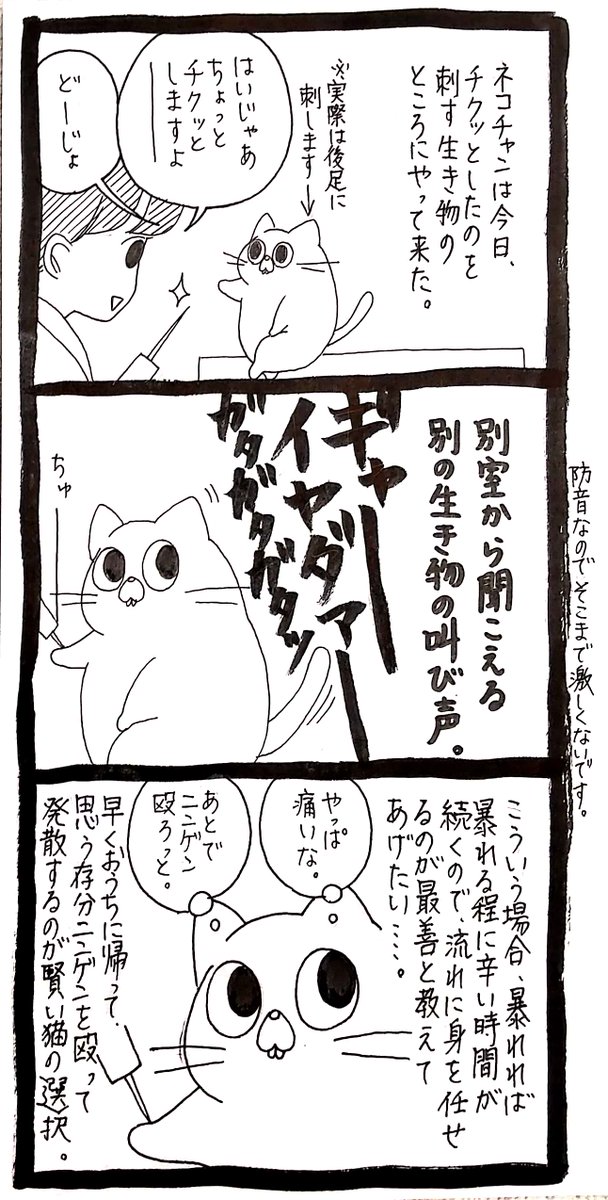 ネコチャンは今日、
チクッとしたのを
刺す生き物の
ところにやって来た。
※実際は後足に
刺します→
はいじゃあ
ちょっと
チクッと
しますよ
ー
どーじょ
別室から聞こえる
別の生き物の叫び声。
ギャー
イヤダァー
ガタガタガタガタッ
ちゅ
防音なのでそこまで激しくないです。
こういう場合、暴れれば
暴れる程に辛い時間が
続くので、流れに身を任せ
るのが最善と教えて
あげたい‥‥。
やっぱ
痛いな。
あとで
ニンゲン
殴ろっと。
早くおうちに帰って、
思う存分ニンゲンを殴って
発散するのが賢い猫の選択。